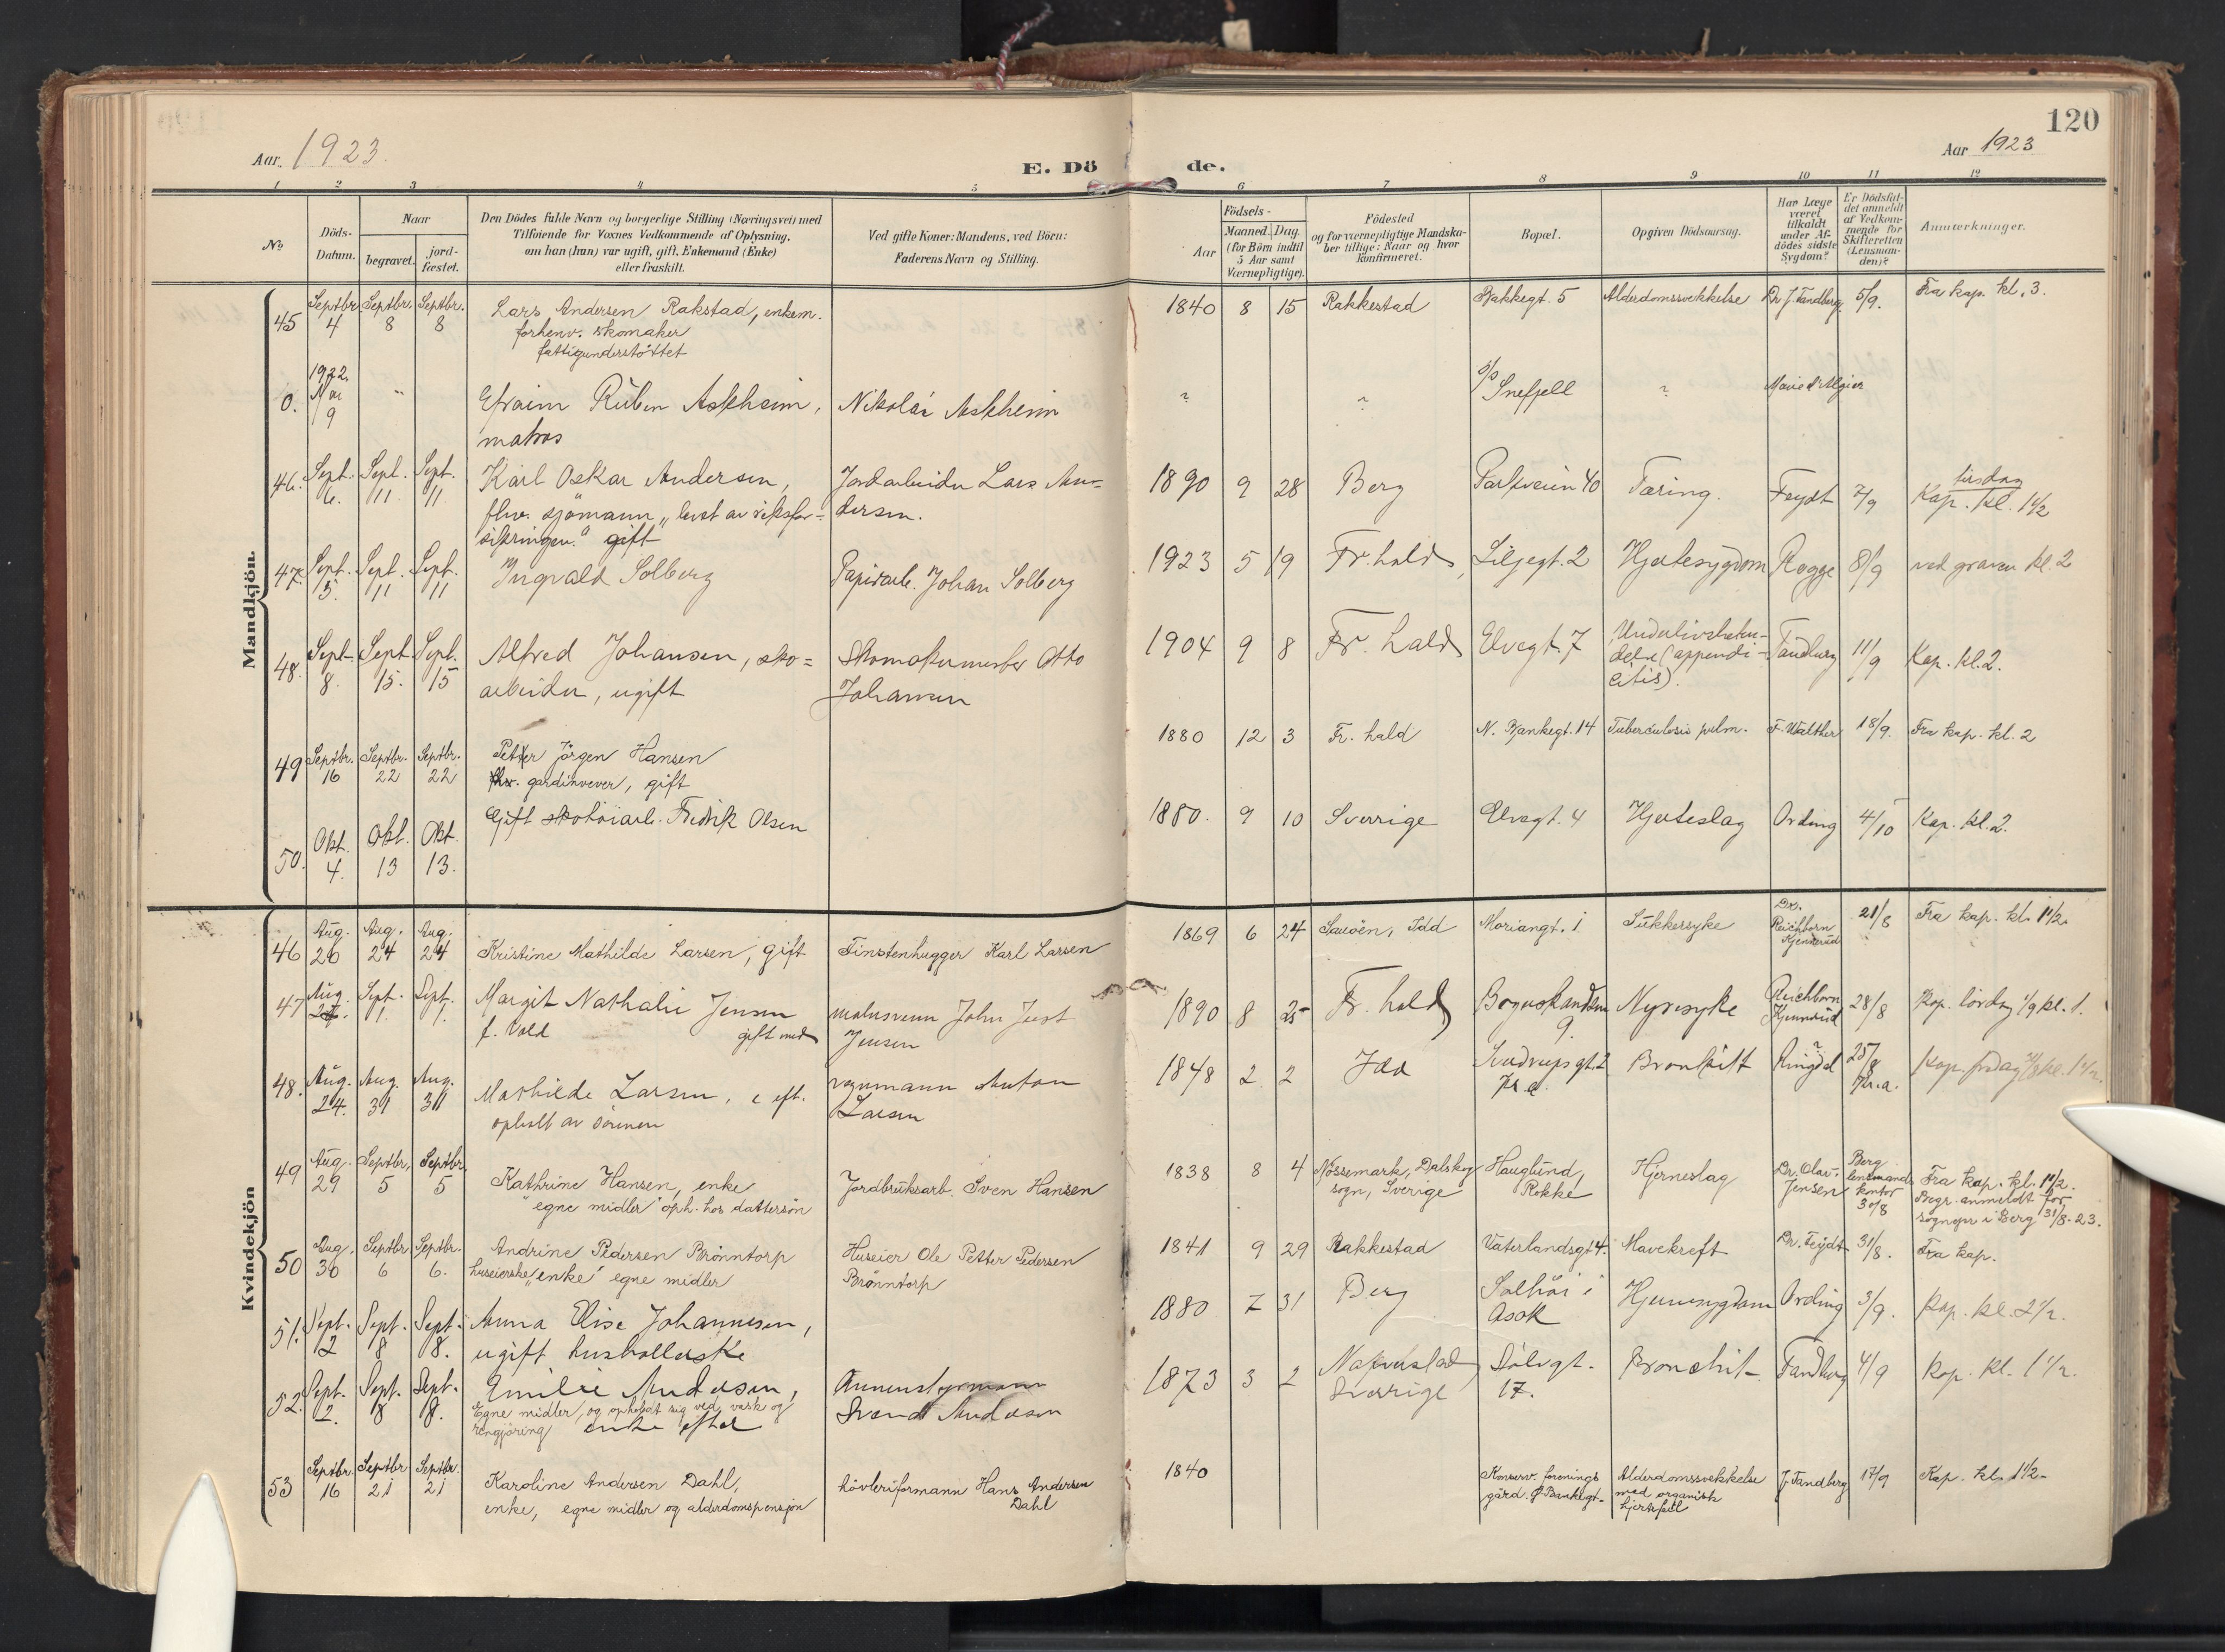 120
Aar. 1923.
E. Dö de.
Aar 1923
1 2 3 4 5 6 7 8 9 10 11 12
No
Döds-
Datum.
Naar
begravet.
jord-
fæstet.
Den Dödes fulde Navn og borgerlige Stilling (Næringsvei) med
Tilföiende for Voxnes Vedkommende af Oplysning,
om han (hun) var ugift, gift, Enkemand (Enke)
eller fraskilt.
Ved gifte Koner: Mandens, ved Börn:
Faderens Navn og Stilling.
Födsels-
Aar
Maaned. Dag.
(for Börn indtil
5 Aar samt
Værnepligtige).
Födested
og for værnepligtige Mandska-
ber tillige: Naar og hvor
konfirmeret.
Bopæl.
Opgiven Dödsaarsag.
Har Læge
været
tilkaldt
under Af-
dödes sidste
Sygdom?
Er Dödsfal-
det anmeldt
af Vedkom-
mende for
Skifteretten
(Lensman-
den)?
Anmærkninger.
Mandkjön.
45 Septbr. 4 Septbr. 8 Septbr. 8 Lars Andersen Rakstad, enkem.
forhenv. skomaker
fattigunderstöttet
1840 8 15 Rakkestad Bakkegt. 5 Alderdomssvekkelse Dr J. Tandberg. 5/9. Fra kap. kl. 3.
0. 1922. Mai 9 " Efraim Ruben Askheim, Nikolai Askheim
matros
? ? S/S Snefjell ?
46. Sept. 6. Sept. 11 Sept. 11 Karl Oskar Andersen, Jordarbeider Lars An-
fhv. sjömann "levet av riksfor- dersen.
sikringen." gift
1890 9 28 Berg Parkveien 40 Tæring. Feydt 7/9 tirsdag
Kap. kl. 1 1/2
47. Sept. 5. Sept. 11 Sept. 11 Ingvald Solberg Papirarb. Johan Solberg
1923 5 19 Fr.hald, Liljegt. 2 Hjertesygdom Rogge 8/9 ved graven kl. 2
48. Sept. 8. Sept. 15. Sept. 15 Alfred Johansen, sko- Skomakermester Otto
arbeider, ugift Johansen
1904 9 8 Fr. hald Elvegt. 7 Underlivsbeten-
delse (appendi-
citis).
Tandberg 11/9 Kap. kl. 2.
49 Septbr. 16 Septbr. 22 Septbr. 22 Petter Jörgen Hansen
fhv. gardinvever, gift
1880 12 3 Fr. hald N. Bankegt. 14 Tuberculosis pulm. F. Walther 18/9. Fra kap. kl. 2
50. Okt. 4. Okt. 13 Okt. 13. Gift skotöiarb. Fredrik Olsen
1880. 9 10 Sverrige Elvegt. 4 Hjerteslag Ording 4/10 Kap. kl. 2.
Kvindekjön
46 Aug. 20 Aug. 24 Aug. 24 Kristine Mathilde Larsen, gift Finstenhugger Karl Larsen
1869 6 24 Sauöen, Idd Mariangt. 1 Sukkersyke Drs.
Reichborn
Kjennerud
21/8 Fra kap. kl. 1 1/2.
47 Aug. Sept. 1. Sept. 1. Margit Nathalie Jensen malersvenn John Just
f. Vold gift med Jensen
1890 8 25 Fr. hald 9 Nyresyke Reichborn
Kjennerud
28/8 Kap. lördag 1/9 kl. 1.
48. Aug. 24. Aug. 31 Aug. 31 Mathilde Larsen, e eft. Anton
opholt av sönnen Larsen
1848 2 2 Idd Bronkitt 25/8 Kap. fredag
49 Aug. 29 Septbr. 5 Septbr. 5 Kathrine Hansen, enke Jordbruksarb. Sven Hansen
"egne midler" oph. hos dattersön
1838 8 4 Nössemark, Dalskog
sogn, Sverige
Hauglund,
Rokke
Hjerneslag Dr. Olav-
Jensen
Berg
lensmands
kontor
30/8
Fra kap. kl. 1 1/2.
Begr. anmeldt for
sognepr i Berg 31/8-23.
50 Aug. 30 Septbr. 6 Septbr. 6. Andrine Pedersen Brönntorp Huseier Ole Petter Pedersen
huseierske "enke" egne midler Brönntorp
1841 9 29 Rakkestad Vaterlandsgt 4. Mavekreft Dr. Feydt 31/8. Fra kap.
51. Sept. 2 Sept. 8 Sept. 8. Anna Elise Johannesen,
ugift husholderske
1880 7 31 Berg Solhöi i
Asak
Ording 3/9. Kap. kl. 2 1/2.
52. Sept. 2. Sept. 8 Sept. 8. Emilie Andersen,
Egne midler, og opholdt sig ved vask og
rengjöring enke efter
Svend Andersen
1873 3 2 Sverrige Dölegt.
17.
Bronchit Tandberg 4/9 Kap. kl. 1 1/2.
53 Septbr. 16 Septbr. 21 Septbr. 21 Karoline Andersen Dahl, hövleriformann Hans Andersen
enke, egne midler og alderdomspensjon Dahl
1840 Konserv. forenings
gård. Ø. Bankegt.
Alderdomssvekkelse
med organisk
hjertefeil
J. Tandberg 17/9 Kap. kl. 1 1/2